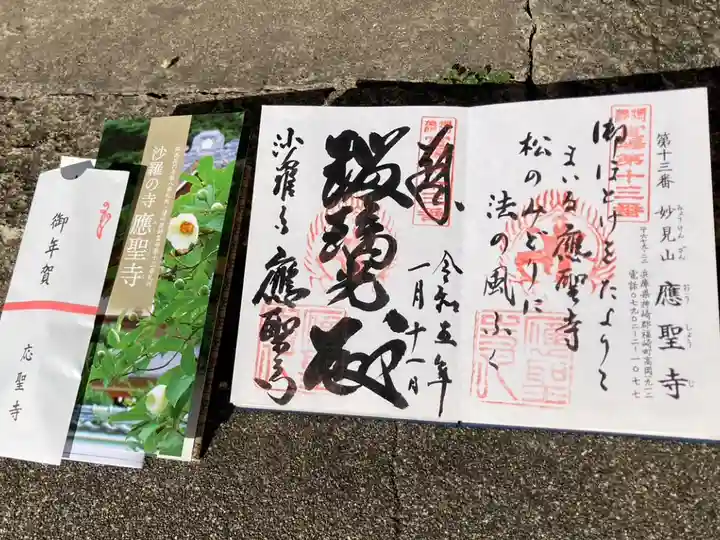 御年賀
応聖寺
沙羅の寺 應聖寺
奉
瑠璃光殿
令和五年
一月十一日
沙羅寺 應聖寺
第十三番
御ほとけをたよりて
まいる應聖寺
松のみどりに
法の風ふく
第十三番 妙見山 應聖寺
みょうけんざん おうしょうじ
兵庫県神崎郡福崎町高岡一九一二
電話〇七九〇-二二-一〇七七